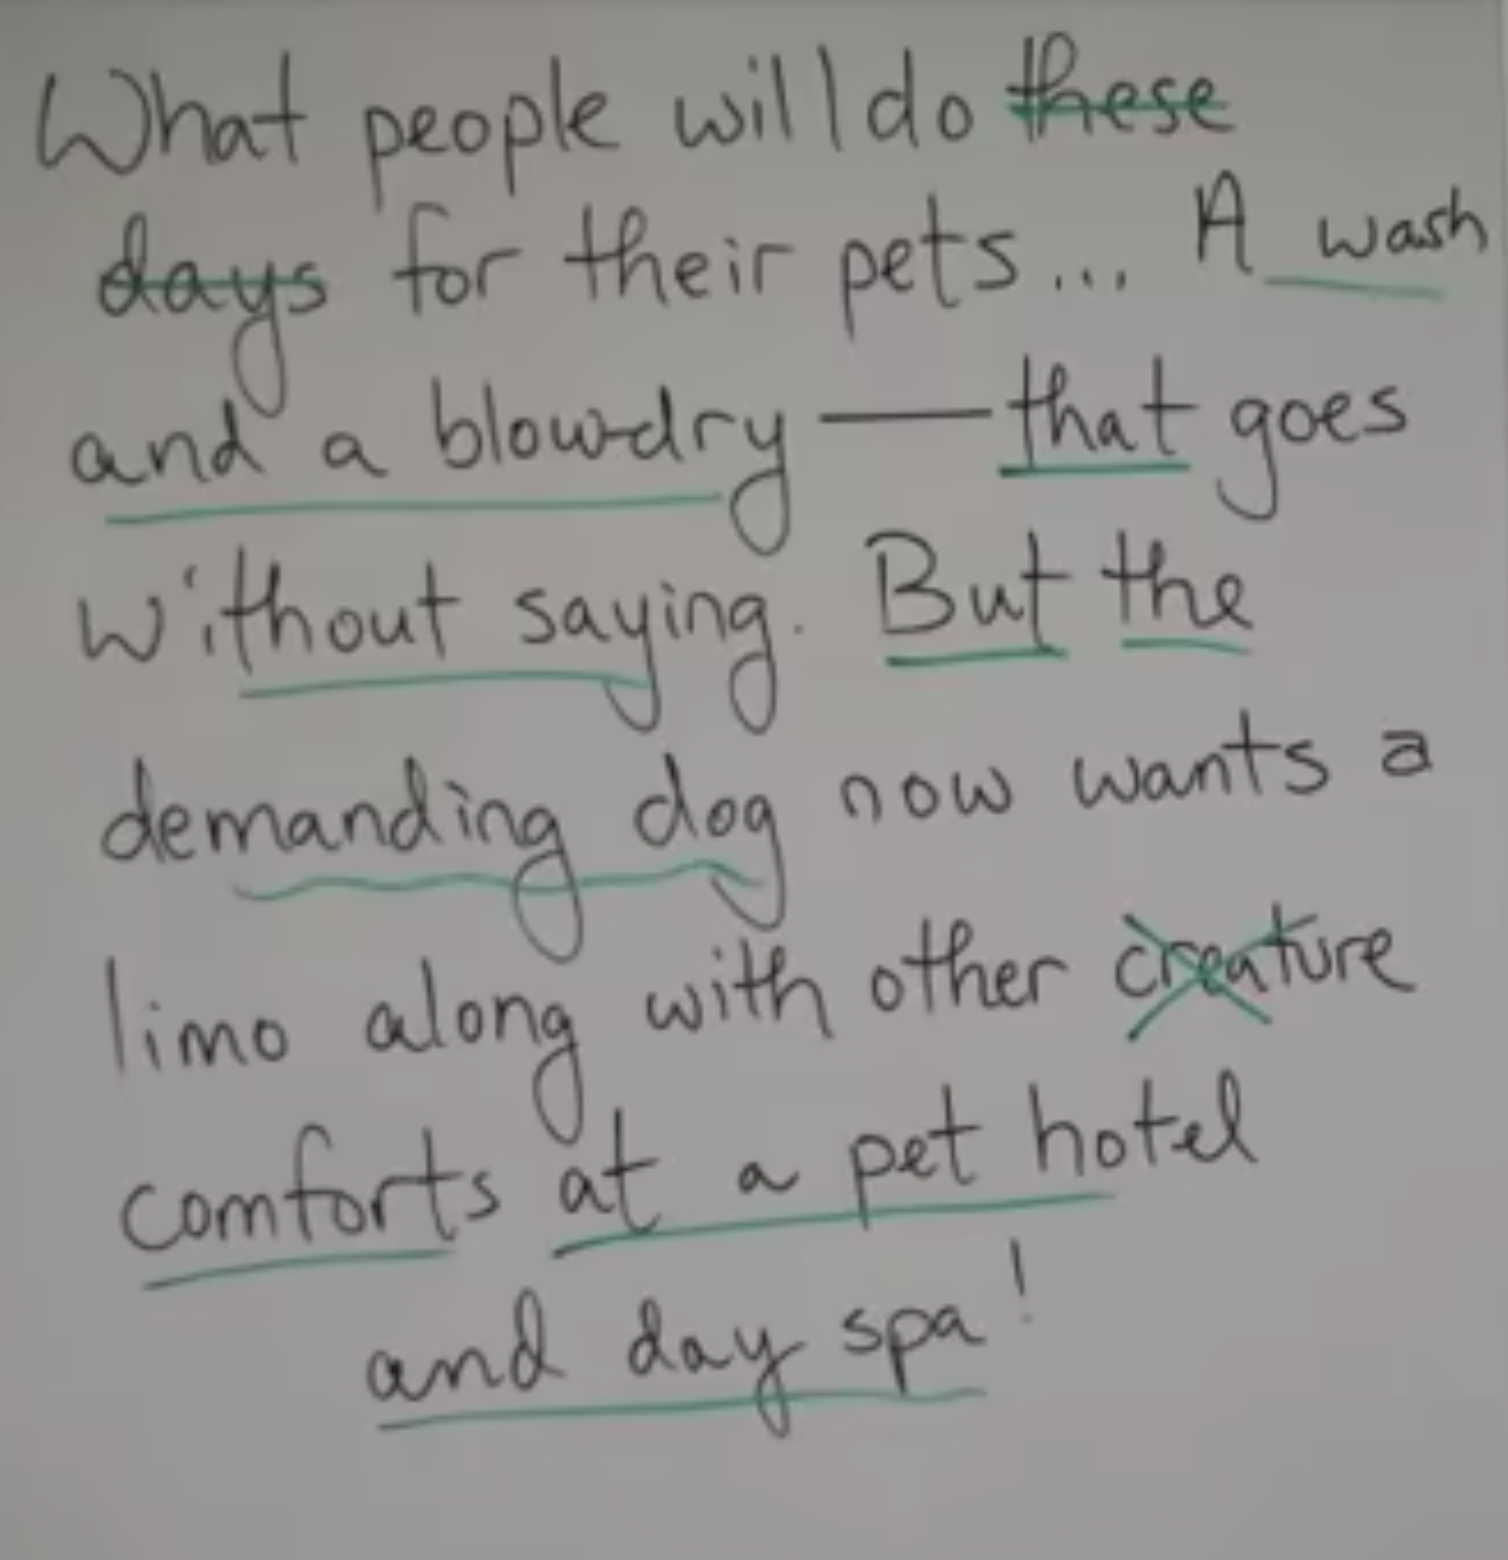 What people will do these
days for their pets... A wash
and a blow-dry — that goes
without saying. But the
demanding dog now wants a
limo along with other creature
comforts at a pet hotel
and day spa!